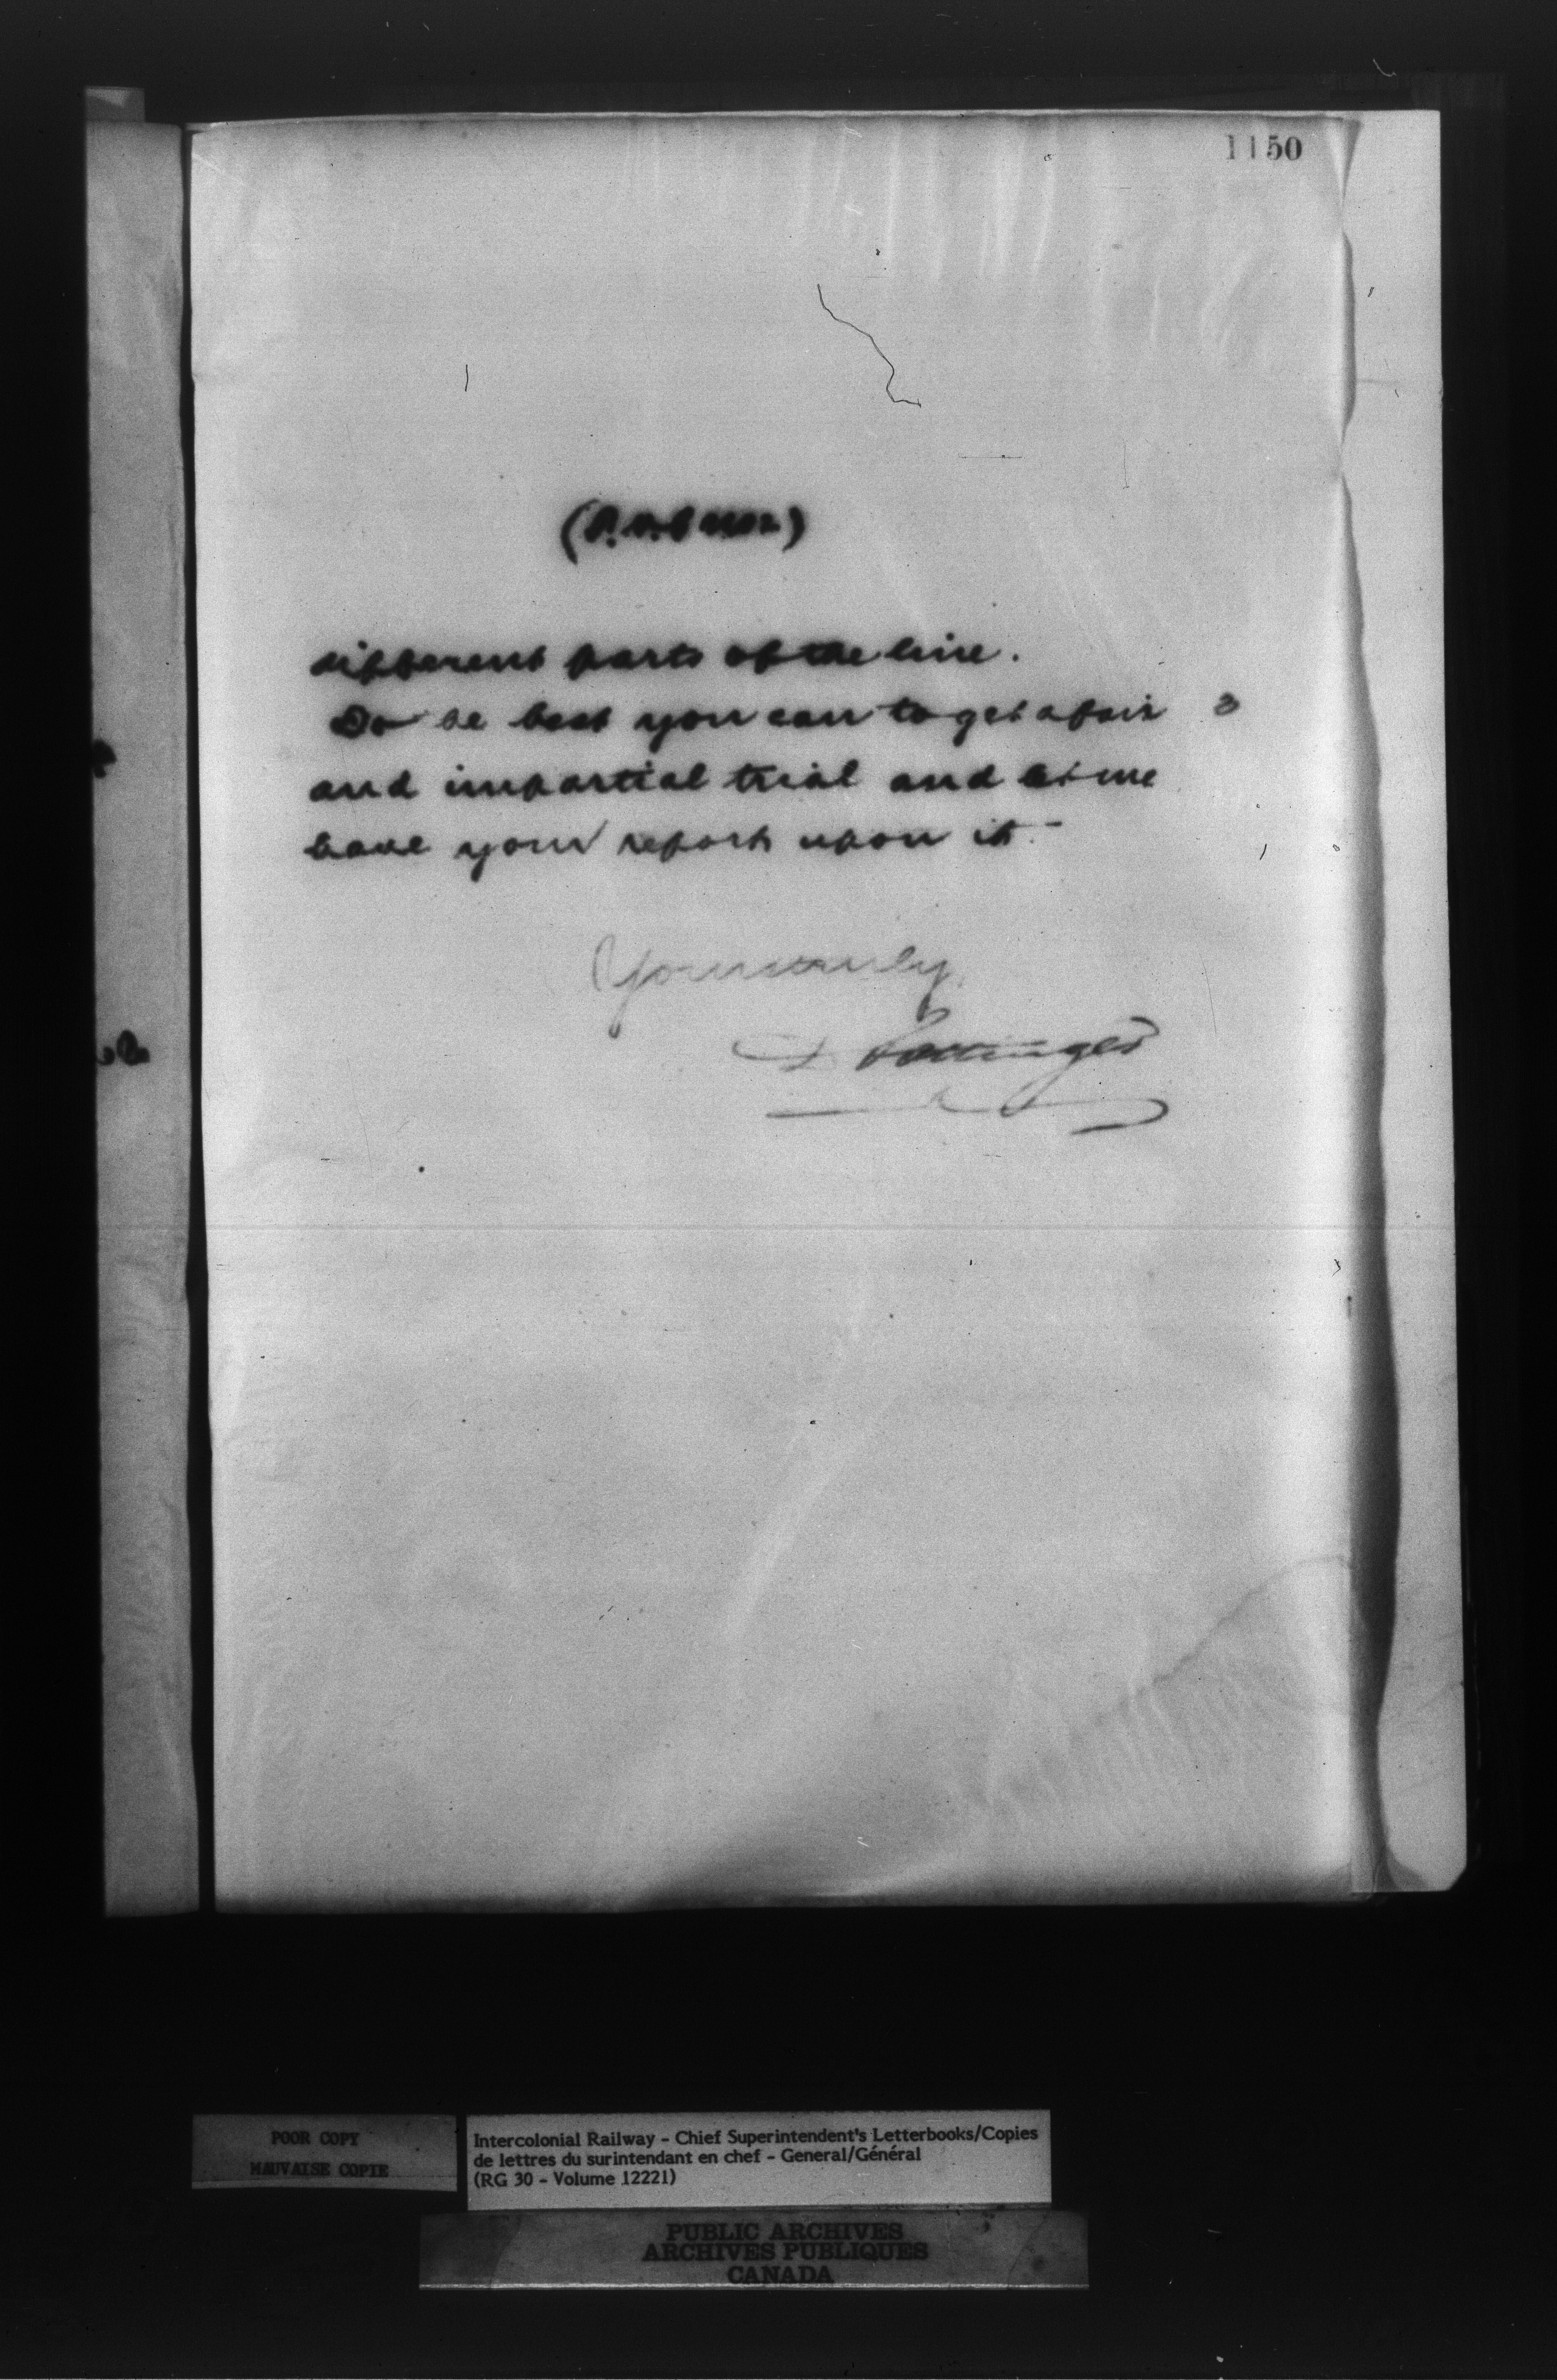 1150
different parts of the line.
Do he best you can to get a fair
and impartial trial and let me
have your report upon it.-
Yours truly
D Pottinger
POOR COPY
MAUVAISE COPIE
Intercolonial Railway - Chief Superintendent's Letterbooks/Copies
de lettres du surintendant en chef - General/Général
(RG 30 - Volume 12221)
PUBLIC ARCHIVES
ARCHIVES PUBLIQUES
CANADA